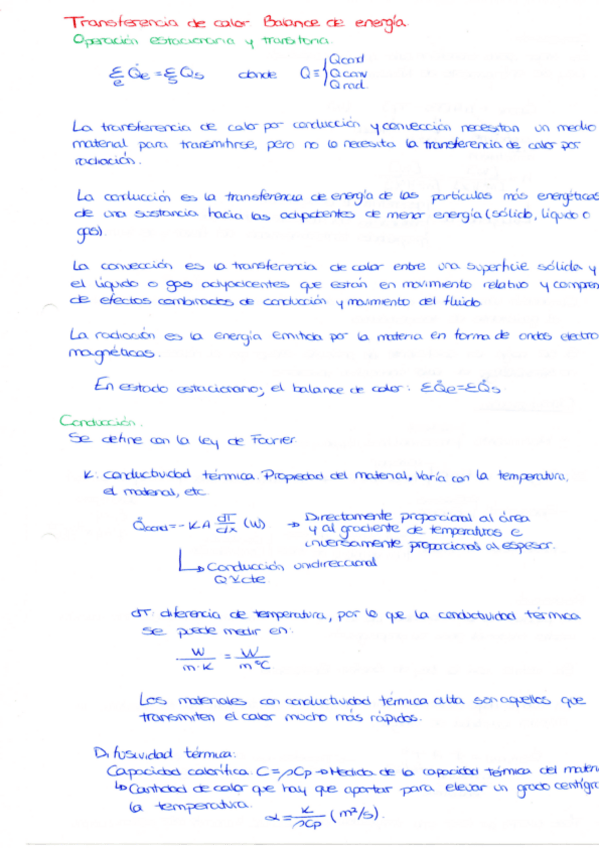 Transferencia de calor Balance de energía.
Operación estacionaria y transitoria
Σe Q̇e = Σs Q̇s donde Q = { Qcond
Qconv
Qrad
La transferencia de calor por conducción y convección necesitan un medio
material para transmitirse, pero no lo necesita la transferencia de calor por
radiación.
La conducción es la transferencia de energía de las partículas más energéticas
de una sustancia hacia las adyacentes de menor energía (sólido, líquido o
gas).
La convección es la transferencia de calor entre una superficie sólida y
el líquido o gas adyacentes que están en movimiento relativo y compren
de efectos combinados de conducción y movimiento del fluido
La radiación es la energía emitida por la materia en forma de ondas electro
magnéticas.
En estado estacionario, el balance de calor: ΣQ̇e = ΣQ̇s
Conducción.
Se define con la ley de Fourier
K: conductividad térmica. Propiedad del material, varía con la temperatura,
el material, etc
Q̇cond = -KA dT/dx (W) → Directamente proporcional al área
y al gradiente de temperaturas e
inversamente proporcional al espesor.
↳ Conducción unidireccional
Q y cte
dT: diferencia de temperatura, por lo que la conductividad térmica
se puede medir en:
W/m·K = W/m°C
Los materiales con conductividad térmica alta son aquellos que
transmiten el calor mucho más rápidos.
Difusividad térmica:
Capacidad calorífica C = ρCp → Medida de la capacidad térmica del materi
↳ Cantidad de calor que hay que aportar para elevar un grado centígra
la temperatura.
α = K/ρCp (m²/s).